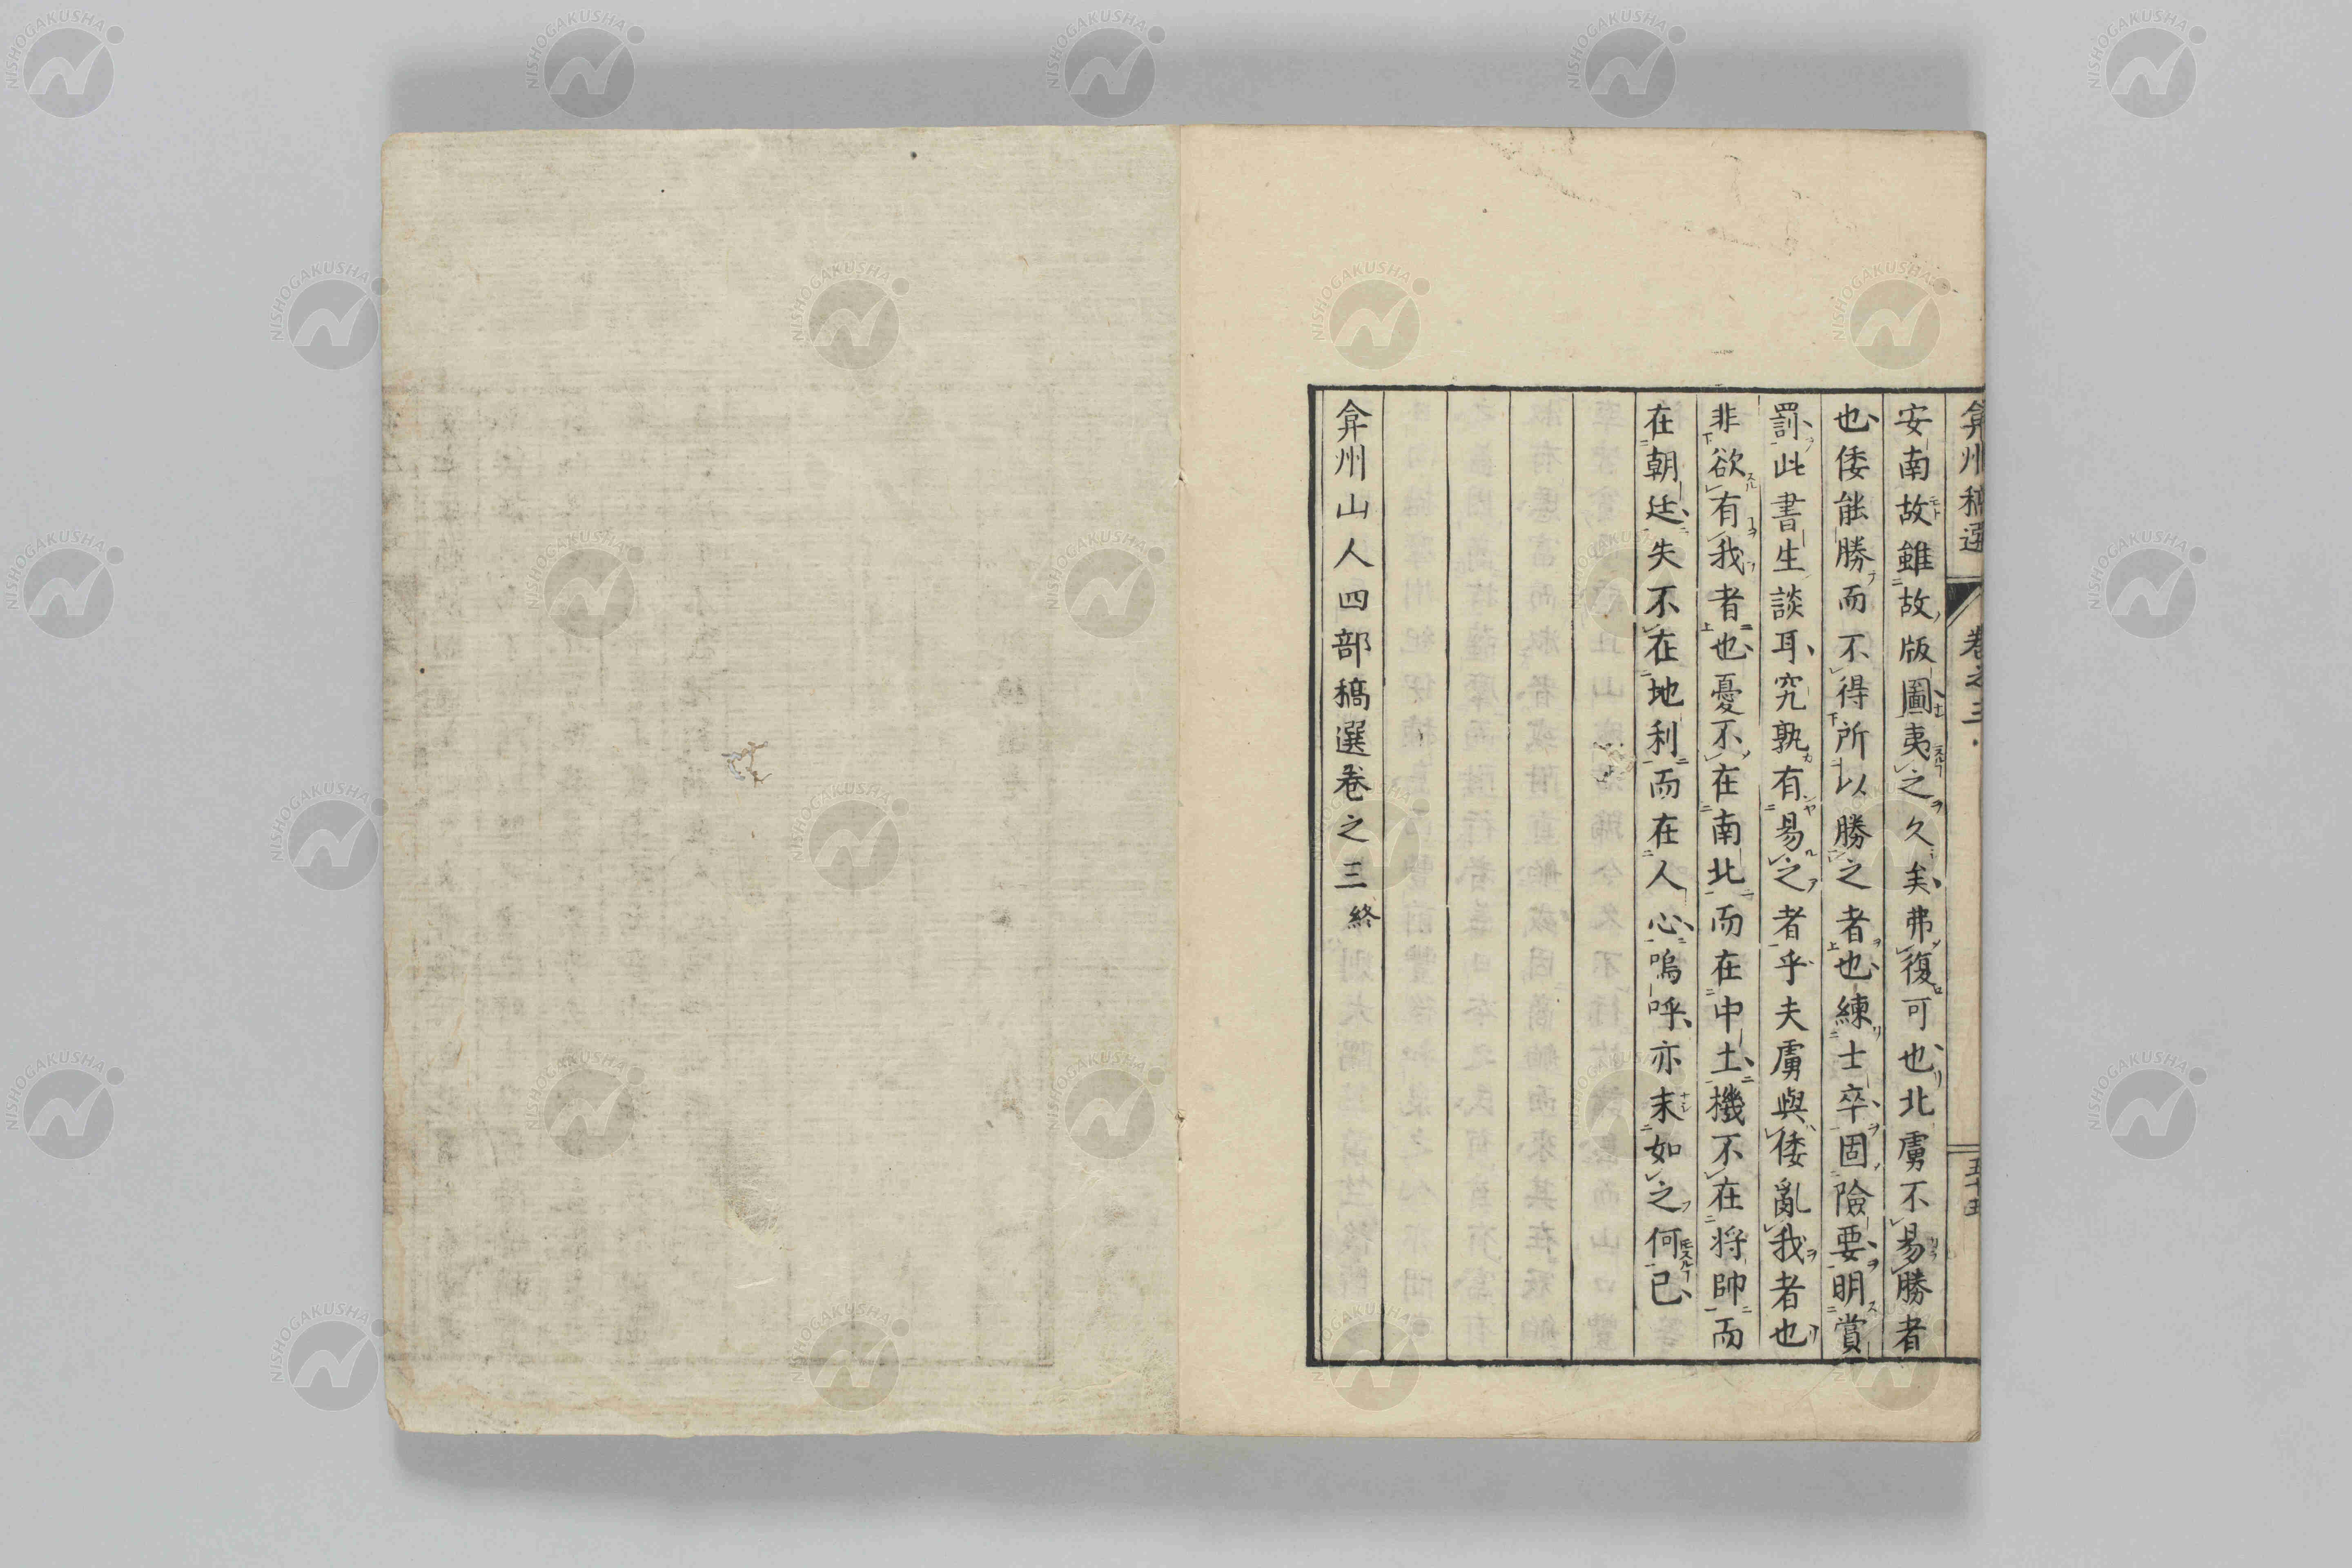 弇州稿選 卷之三 五十五
安南故雖故版圖夷之久矣弗復可也北虜不易勝者
也倭能勝而不得所以勝之者也練士卒固險要明賞
罰此書生談耳究孰有易之者乎夫虜與倭亂我者也
非欲有我者也憂不在南北而在中土機不在將帥而
在朝廷失不在地利而在人心嗚呼亦末如之何已
弇州山人四部稿選卷之三終